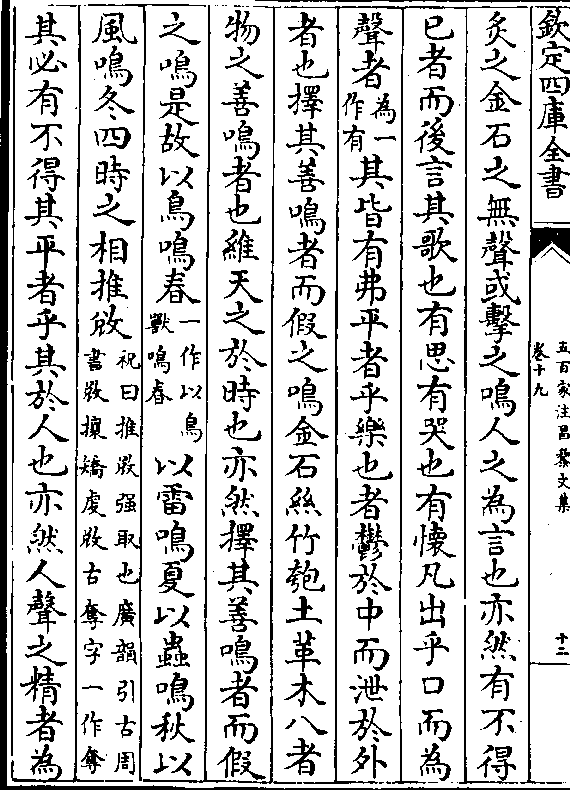 欽定四庫全書
五百家注昌黎文集
卷十九
十二
炙之金石之無聲或擊之鳴人之為言也亦然有不得
已者而後言其歌也有思有哭也有懐凡出乎口而為
聲者為一作有其皆有弗平者乎樂也者鬱於中而泄於外
者也擇其善鳴者而假之鳴金石絲竹匏土革木八者
物之善鳴者也維天之於時也亦然擇其善鳴者而假
之鳴是故以鳥鳴春一作以鳥獸鳴春以雷鳴夏以蟲鳴秋以
風鳴冬四時之相推敓祝曰推敓强取也廣韻引古周書敓攘矯虔敓古奪字一作奪
其必有不得其平者乎其於人也亦然人聲之精者為